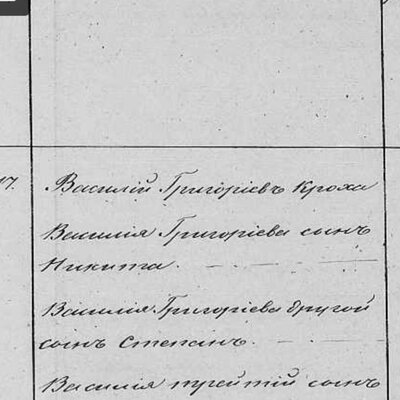 17. Василій Григоріевъ Кроха
Василія Григоріева сынъ
Никита.
Василія Григоріева другой
сынъ Степанъ.
Василія третій сынъ